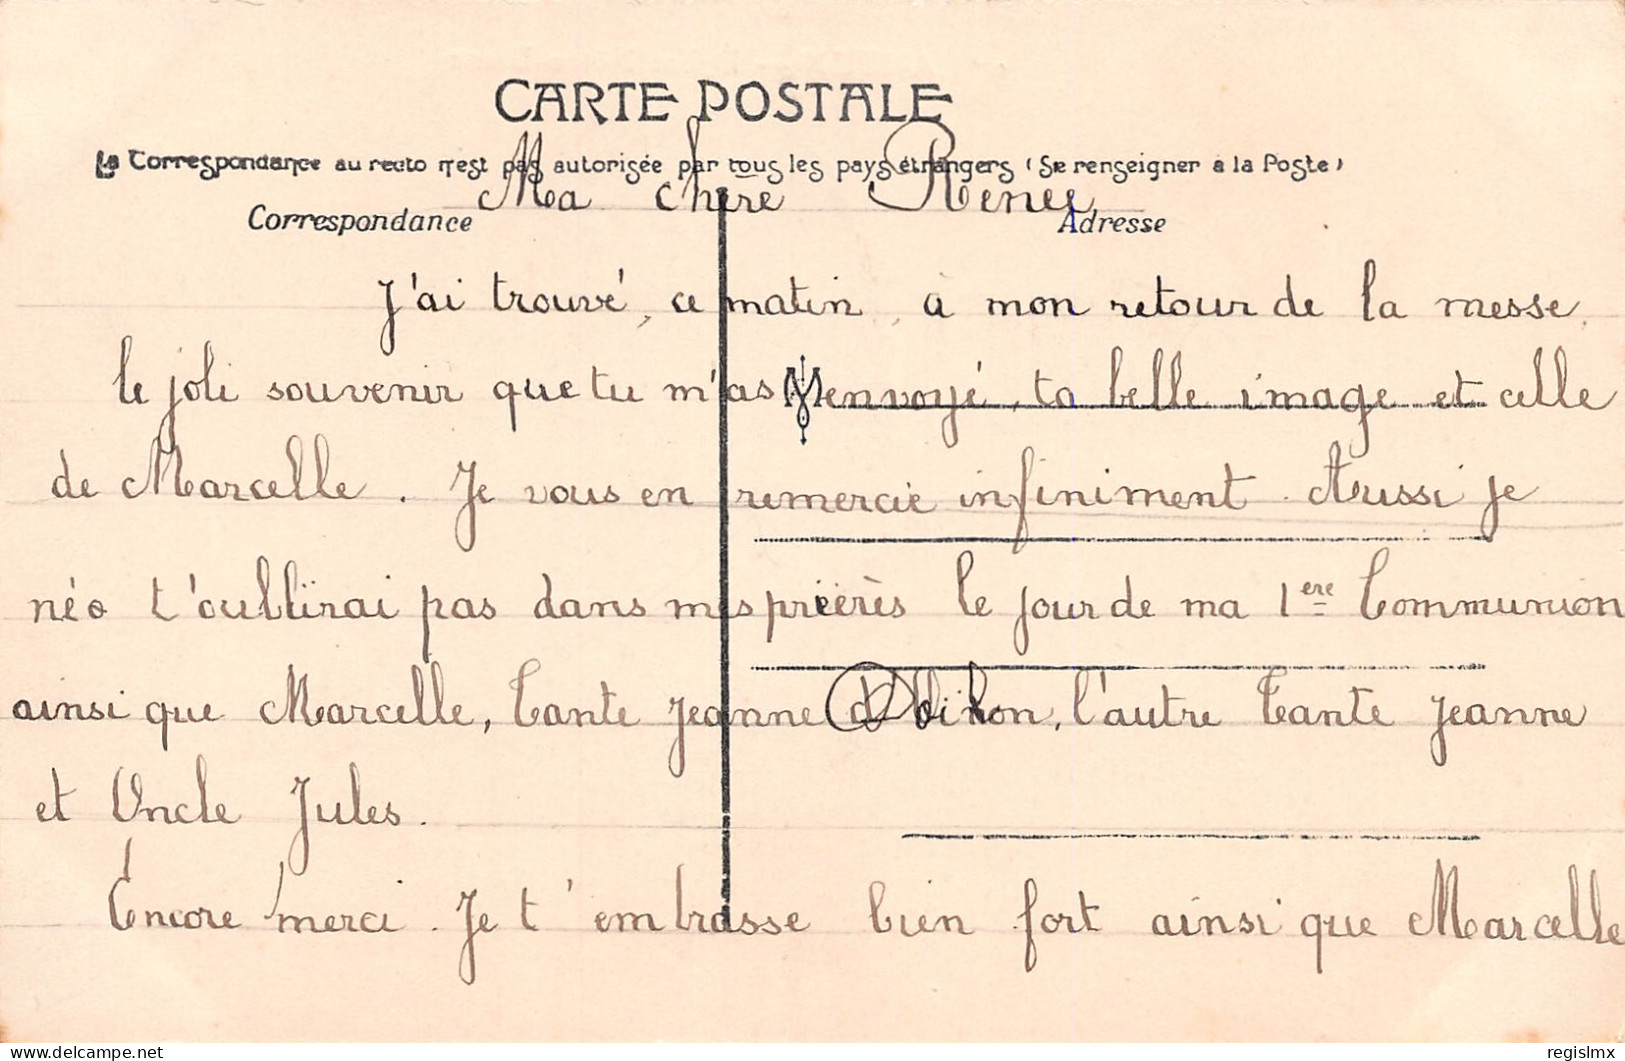 CARTE POSTALE
La Correspondance au recto n'est pas autorisée par tous les pays étrangers (Se renseigner à la Poste)
Ma chere Renee
Correspondance Adresse
J'ai trouvé, ce matin, a mon retour de la messe,
le joli souvenir que tu m'as envoyé, ta belle image et celle
de Marcelle. Je vous en remercie infiniment. Aussi je
t'oublirai pas dans mes prières le jour de ma 1ere Communion
ainsi que Marcelle, Tante Jeanne l'autre Tante Jeanne
et Oncle Jules.
Encore merci. Je t'embrasse bien fort ainsi que Marcelle
delcampe.net
regislmx